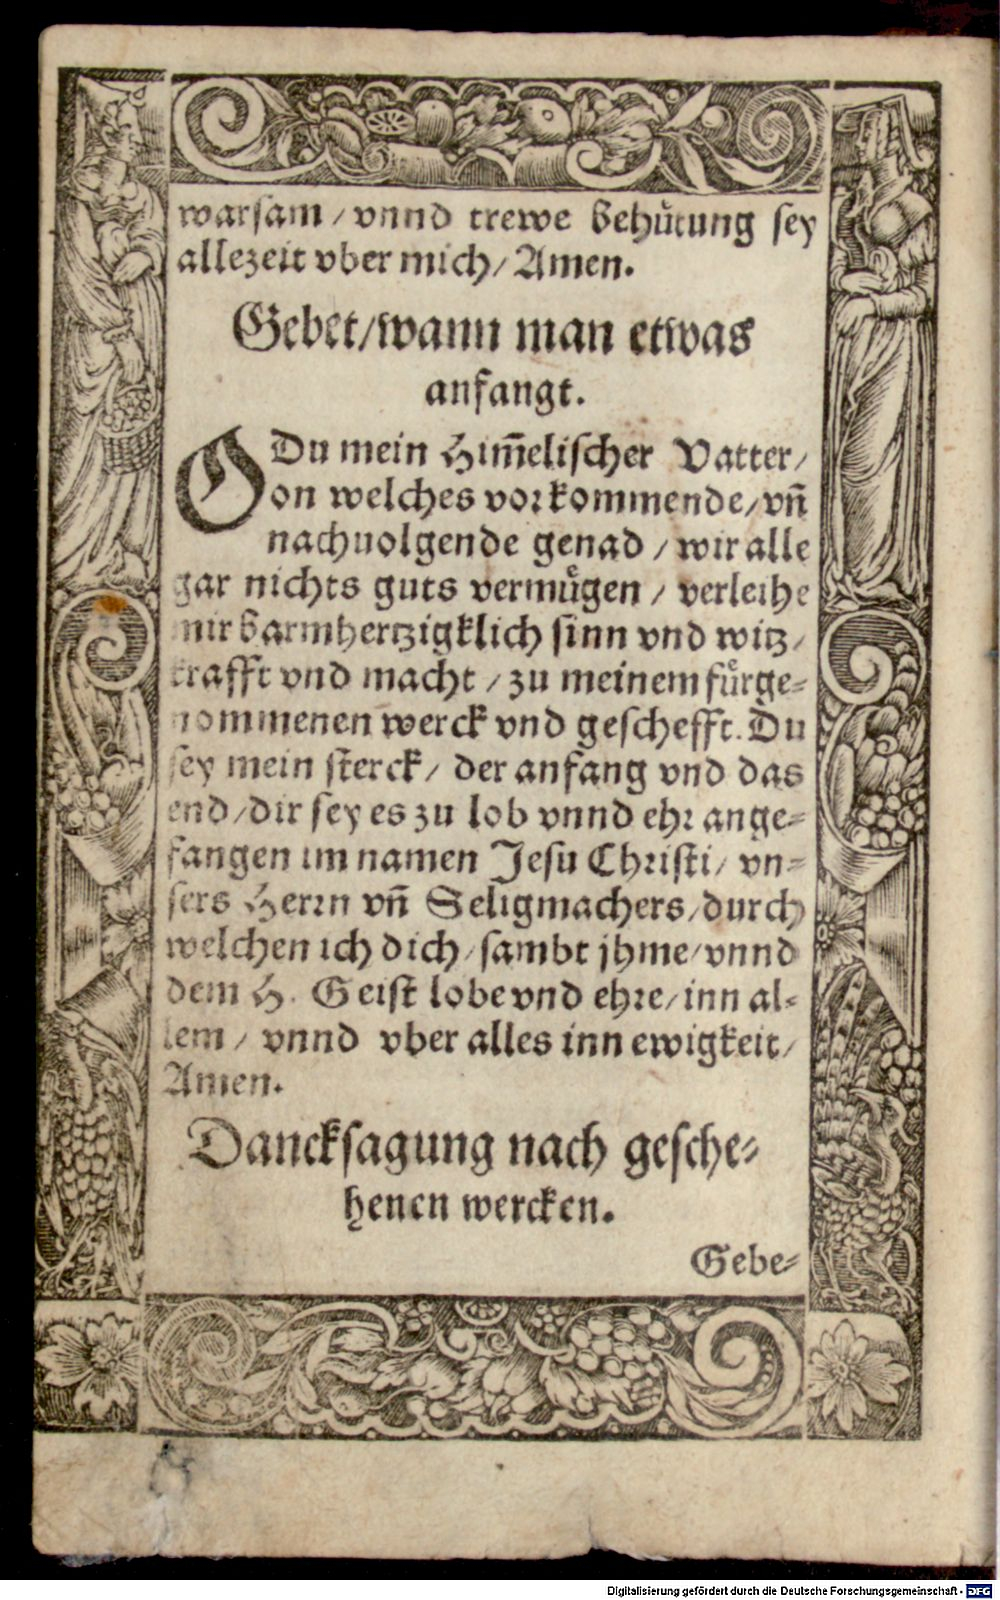 warsam / vnnd trewe behütung sey
allezeit vber mich / Amen.
Gebet / wann man etwas
anfangt.
O Du mein Him̃elischer Vatter /
on welches vorkommende / vñ
nachuolgende genad / wir alle
gar nichts guts vermügen / verleihe
mir barmhertzigklich sinn vnd witz /
krafft vnd macht / zu meinem fürge-
nommenen werck vnd geschefft. Du
sey mein sterck / der anfang vnd das
end / dir sey es zu lob vnnd ehr ange-
fangen im namen Jesu Christi / vn-
sers Herrn vñ Seligmachers / durch
welchen ich dich / sambt jhme / vnnd
dem H. Geist lobe vnd ehre / inn al-
lem / vnnd vber alles inn ewigkeit /
Amen.
Dancksagung nach gesche-
henen wercken.
Gebe-
Digitalisierung gefördert durch die Deutsche Forschungsgemeinschaft - DFG